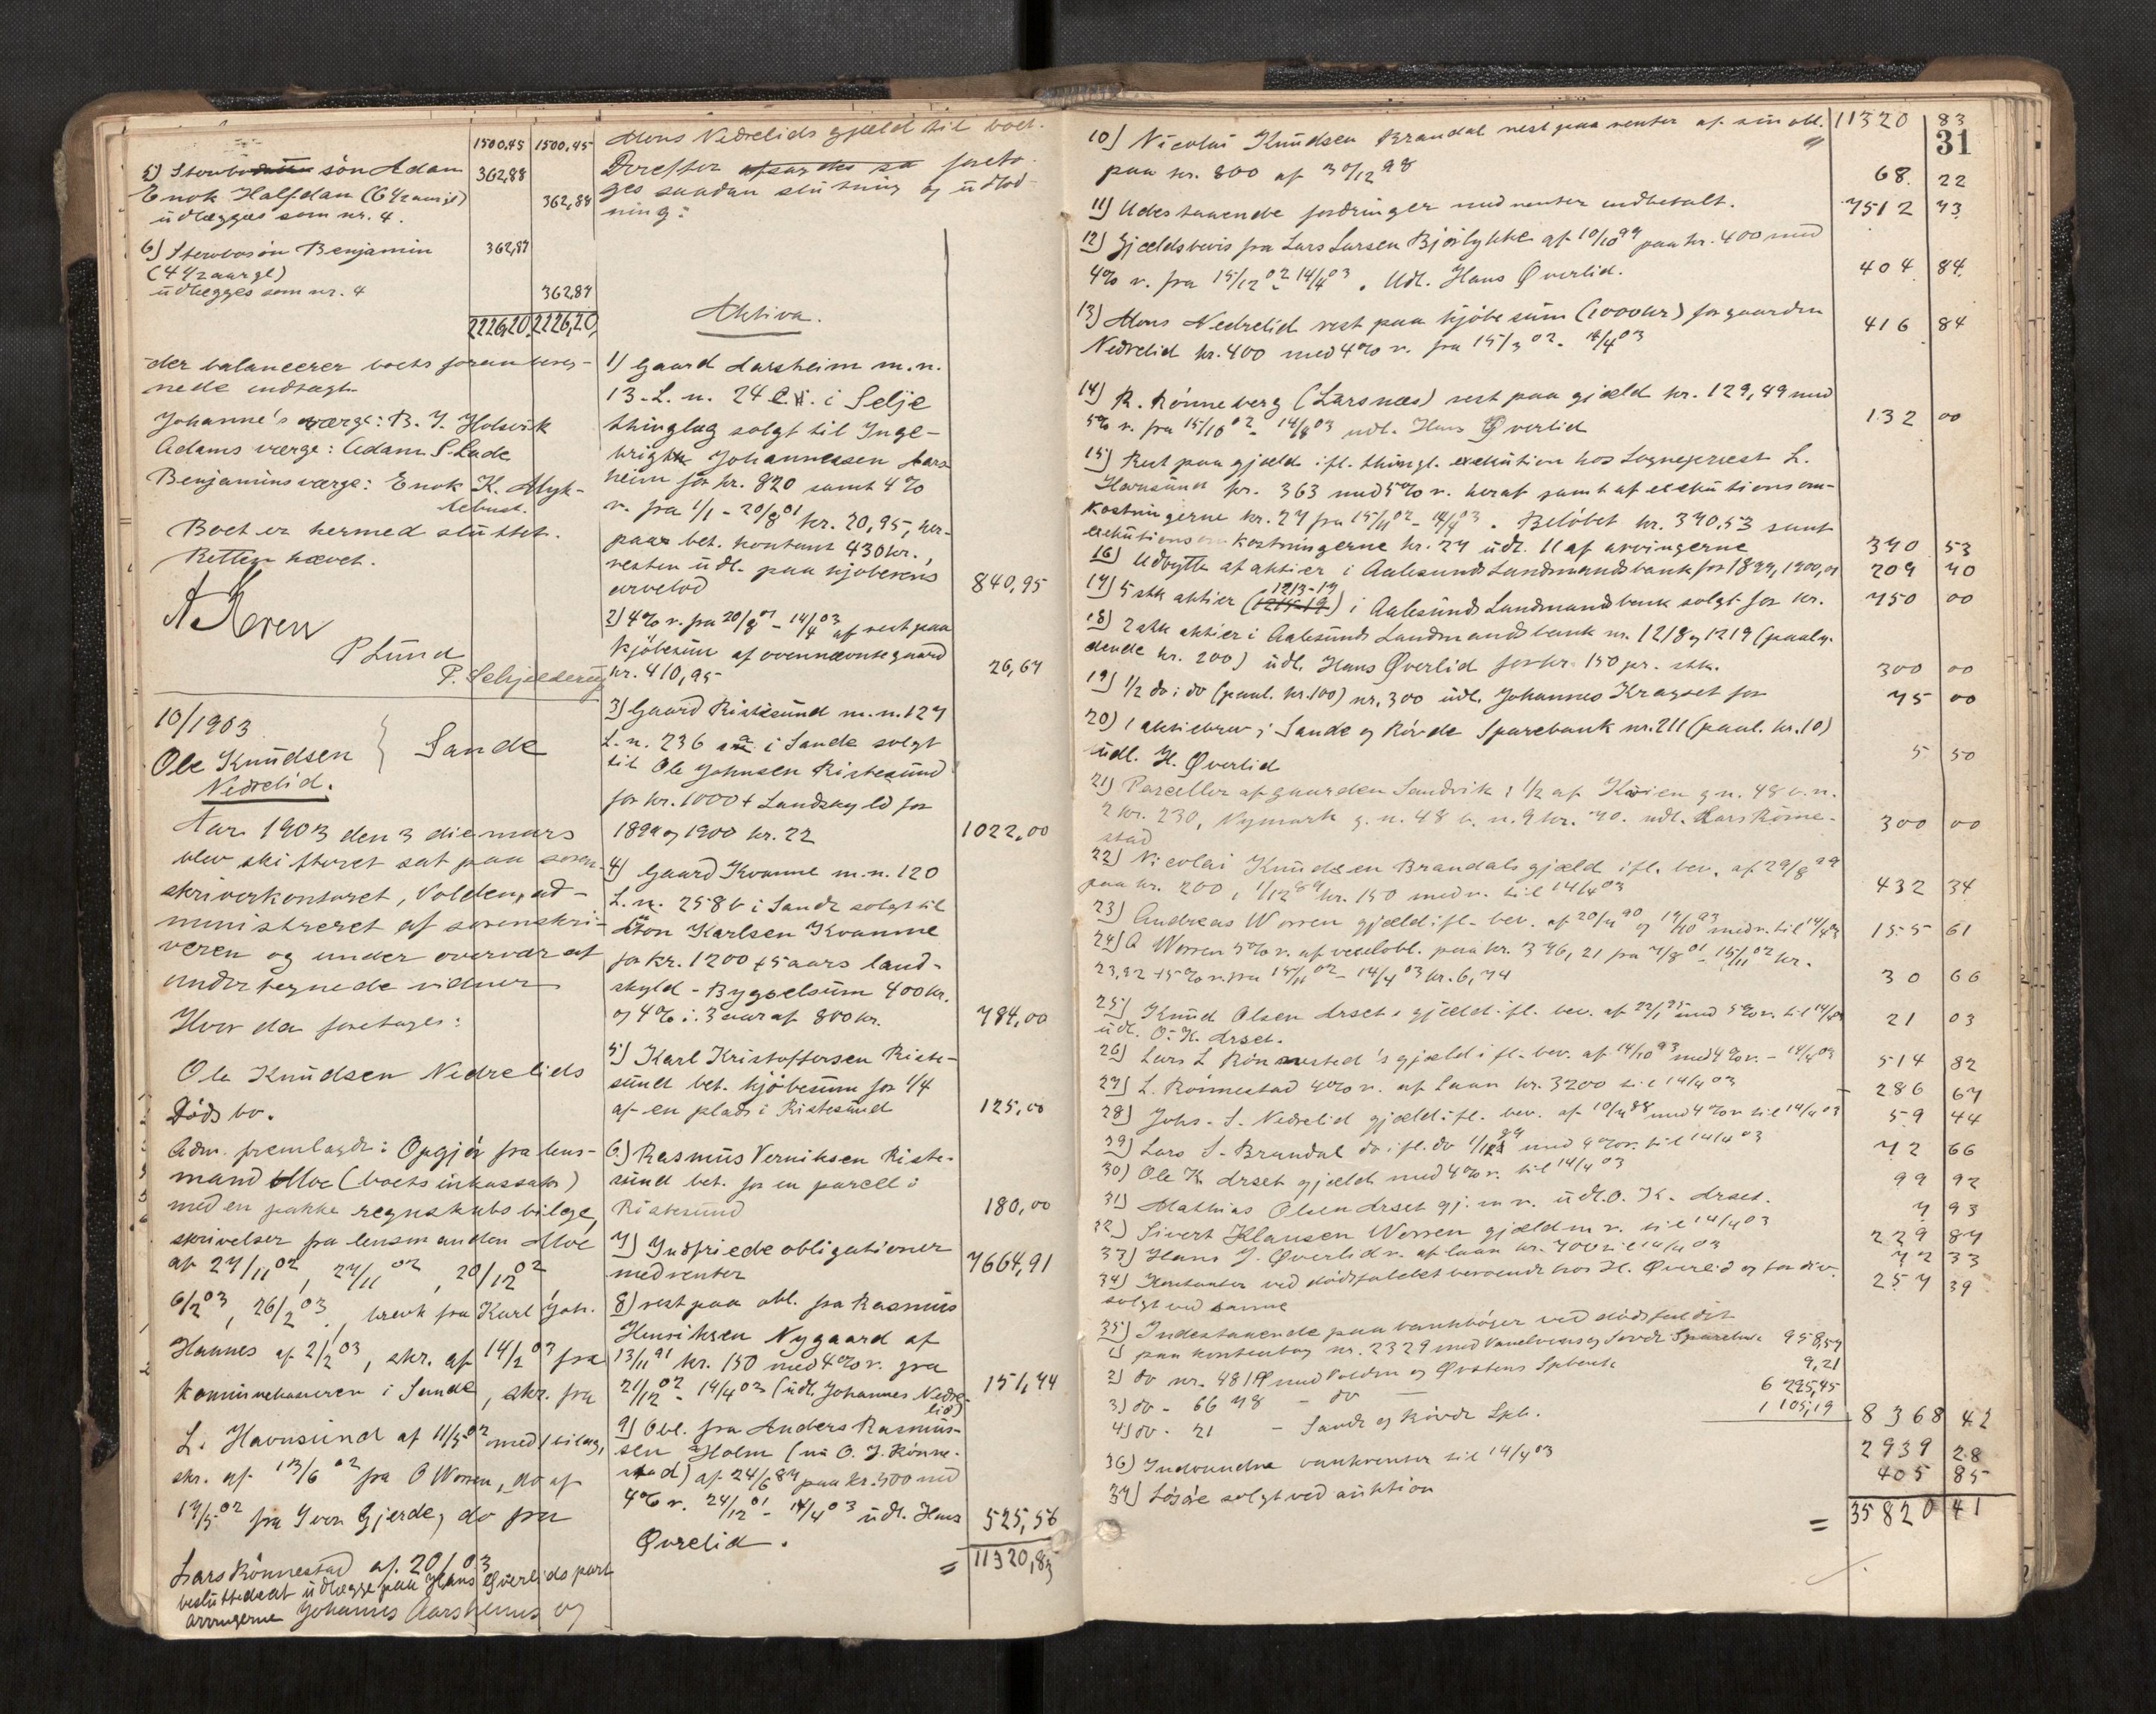 1500,45 1500,45
5) Stervbo søn Adam 362,88
Enok Halfdan (6 1/2 aargl)
udlægges som nr. 4. 362,88
6) Stervbosøn Benjamin 362,87
(4 1/2 aargl)
udlægges som nr. 4 362,87
2226,20 2226,20
der balancerer boets foran bereg-
nede indtægt.
Johanne's værge: B. J. Holsvik
Adams værge: Adam S. Lade
Benjamins værge: Enok K. Myk-
lebust.
Boet er hermed sluttet.
Retten hævet.
P Lund
P. Schjelderup
10/1903
Ole Knudsen } Sande
Nedrelid.
Aar 1903 den 3 die mars
blev skifteret sat paa soren-
skriverkontoret, Volden, ad-
ministreret af sorenskri-
veren og under overvær af
undertegnede vidner
Hvor da foretages:
Ole Knudsen Nedrelids
Dødsbo.
Adm. fremlagde: Opgjør fra lens-
mand Moe (boets inkassator)
med en pakke regnskabsbilage,
skrivelser fra lensmanden Moe
af 27/11 02, 27/11 02, 20/12 02
6/2 03, 26/2 03, brevk fra Karl Joh.
Hannes af 2/2 03, skr. af 14/2 03 fra
kommunekasseren i Sande, skr. fra
L. Havnsund af 11/5 02 med 1 bilag,
skr. af 13/6 02 fra O Worren, do af
17/5 02 fra Iver Gjerde, do fra
Lars Rønnestad af 20/ 03
besluttedes at udlægge paa Hans Øverlids part
arvingerne Johannes Aarsheims og
Mons Nedrelids gjæld til boet.
Derefter foreto-
ges saadan slutning og udlod-
ning:
Aktiva.
1) Gaard Aarsheim m.n.
13. L. n. 24 i Selje
thinglag solgt til Inge-
brigt Johannessen Aars-
heim for kr. 820 samt 4 %
r. fra 1/1 - 20/8 01 kr. 20,95, her-
paa bet. kontant 430 kr.,
resten udl. paa kjøberens
arvelod 840,95
2) 4% r. fra 20/8 01 - 14/4 03 af rest paa
kjøbesum af ovennævnte gaard
kr. 410,95 26,67
3) Gaard Ristesund m.n. 127
L.n. 236 a i Sande solgt
til Ole Johnsen Ristesund
for kr. 1000 + Landskyld for
1899 og 1900 kr. 22 1022,00
4) Gaard Kvamme m.n. 120
L.n. 258 b i Sande solgt til
Karlsen Kvamme
for kr. 1200 + 5 aars land-
skyld - Bygselsum 400 kr.
og 4% i 3 aar af 800 kr. 784,00
5) Karl Kristoffersen Riste-
sund bet. kjøbesum for 1/4
af en plads i Ristesund 125,00
6) Rasmus Verniksen Riste-
sund bet. for en parcel i
Ristesund 180,00
7) Indfriede obligationer
med renter 7664,91
8) rest paa obl. fra Rasmus
Henriksen Nygaard af
13/11 91 kr. 150 med 4% r. fra
21/12 02 - 14/4 03 (udl. Johannes Nedre-
lid) 151,74
9) Obl. fra Anders Rasmus-
sen Holm (nu O. J. Rønne-
stad) af 24/6 87 paa kr. 500 med
4% r. 24/12 01 - 14/4 03 udl. Hans 525,56
Øvrelid.
= 11320,83
31
10) Nicolai Knudsen Brandal rest paa renter af sin obl. 11320 83
paa kr. 800 af 30/12 98 68 22
11) Udestaaende fordringer med renter indbetalt. 7512 73
12) Gjældsbevis fra Lars Larsen Bjørlykke af 10/10 99 paa kr. 400 med
4% r. fra 15/12 02 - 14/4 03. Udl. Hans Øverlid. 404 84
13) Mons Nedrelid rest paa kjøbesum (1000 kr) for gaarden
Nedrelid kr. 400 med 4% r. fra 15/3 02 - 14/4 03 416 84
14) R. Rønneberg (Larsnæs) rest paa gjæld kr. 129,49 med
5% r. fra 15/10 02 - 14/4 03 udl. Hans Øverlid 132 00
15) Rest paa gjæld ifl. thingl. exekution hos Sogneprest L.
Havnsund kr. 363 med 5% r. heraf samt af exekutionsom-
kostningerne kr. 27 fra 15/11 02 - 14/4 03. Beløbet kr. 370,53 samt
exekutionsomkostningerne kr. 27 udl. 11 af arvingerne 370 53
16) Udbytte af aktier i Aalesunds Landmandsbank for 1899, 1900, 01 209 70
1213-17
17) 5 stk aktier (1215-19) i Aalesunds Landmandsbank solgt for kr. 750 00
18) 2 stk aktier i Aalesunds Landmandsbank nr. 1218 og 1219 (paaly-
dende kr. 200) udl. Hans Øverlid for kr. 150 pr. stk. 300 00
19) 1/2 do i do (paal. kr. 100) nr. 300 udl. Johannes Kragset for 75 00
20) 1 aktiebrev i Sande og Rövde Sparebank nr. 211 (paal. kr. 10)
udl. H. Øverlid 5 50
21) Parceller af gaarden Sandvik: 1/2 af Kvien g.n. 48 b.n.
2 kr. 230, Nymark g.n. 48 b.n. 9 kr. 70. udl. Lars Rønne-
stad 300 00
22) Nicolai Knudsen Brandals gjæld ifl. bev. af 29/8 99
paa kr. 200, 1/12 89 kr. 150 med r. til 14/4 03 432 34
23) Andreas Worren gjæld ifl. bev. af 20/4 90 og 19/10 93 med r. til 14/4 03 155 61
24) A Worren 5% r. af vexelobl. paa kr. 376,21 fra 7/8 01 - 15/11 02 kr.
23,92 + 5% r. fra 15/11 02 - 14/4 03 kr. 6,74 30 66
25) Knud Olsen Arset's gjæld ifl. bev. af 22/1 95 med 5% r. til 14/4 03 21 03
udl. O. K. Arset.
26) Lars L Rønnested's gjæld ifl. bev. af 14/10 93 med 4% r. - 14/4 03 514 82
27) L. Rønnestad 4% r. af laan kr. 3200 til 14/4 03 286 67
28) Johs. S. Nedrelid gjæld ifl. bev. af 10/4 88 med 4% r til 14/4 03 59 44
29) Lars S. Brandal do ifl. do med 4% r. til 14/4 03 72 66
30) Ole K. Arset gjæld med 4% r. til 14/4 03 99 92
31) Mathias Olsen Arset gj. m r. udl. O. K. Arset. 7 93
32) Sivert Klausen Worren gjæld m r. til 14/4 03 229 87
33) Hans J. Øverlid r. af laan kr. 700 til 14/4 03 72 33
34) Kontanter ved dødsfaldet beroende hos H. Øverlid og for div. 257 39
solgt ved samme
35) Indestaaende paa bankbøger ved dødsfaldet
1) paa kontrabog nr. 2329 med Vanelvens og Sovde Sparebank 958,57
2) do nr. 4819 med Volden og Ørstens Spbank 9,21
3) do - 6678 - do 6295,45
4) do - 21 - Sande og Rövde Spb. 1105,19 8368 42
36) Indvundne bankrenter til 14/4 03 2939 28
37) Løsøre solgt ved auktion 405 85
= 35820 41